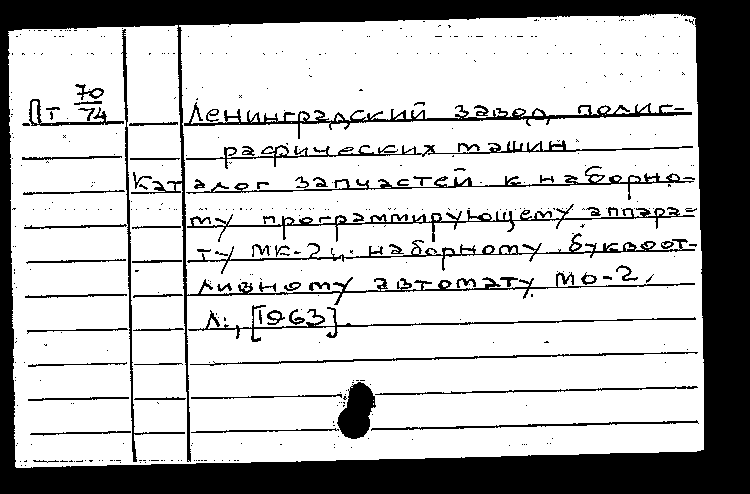 Пт 70/74 Ленинградский завод полиг-
рафических машин
Каталог запчастей к наборно-
му программирующему аппара-
ту МК-2 и наборному буквоот-
ливному автомату МО-2,
Л., [1963].